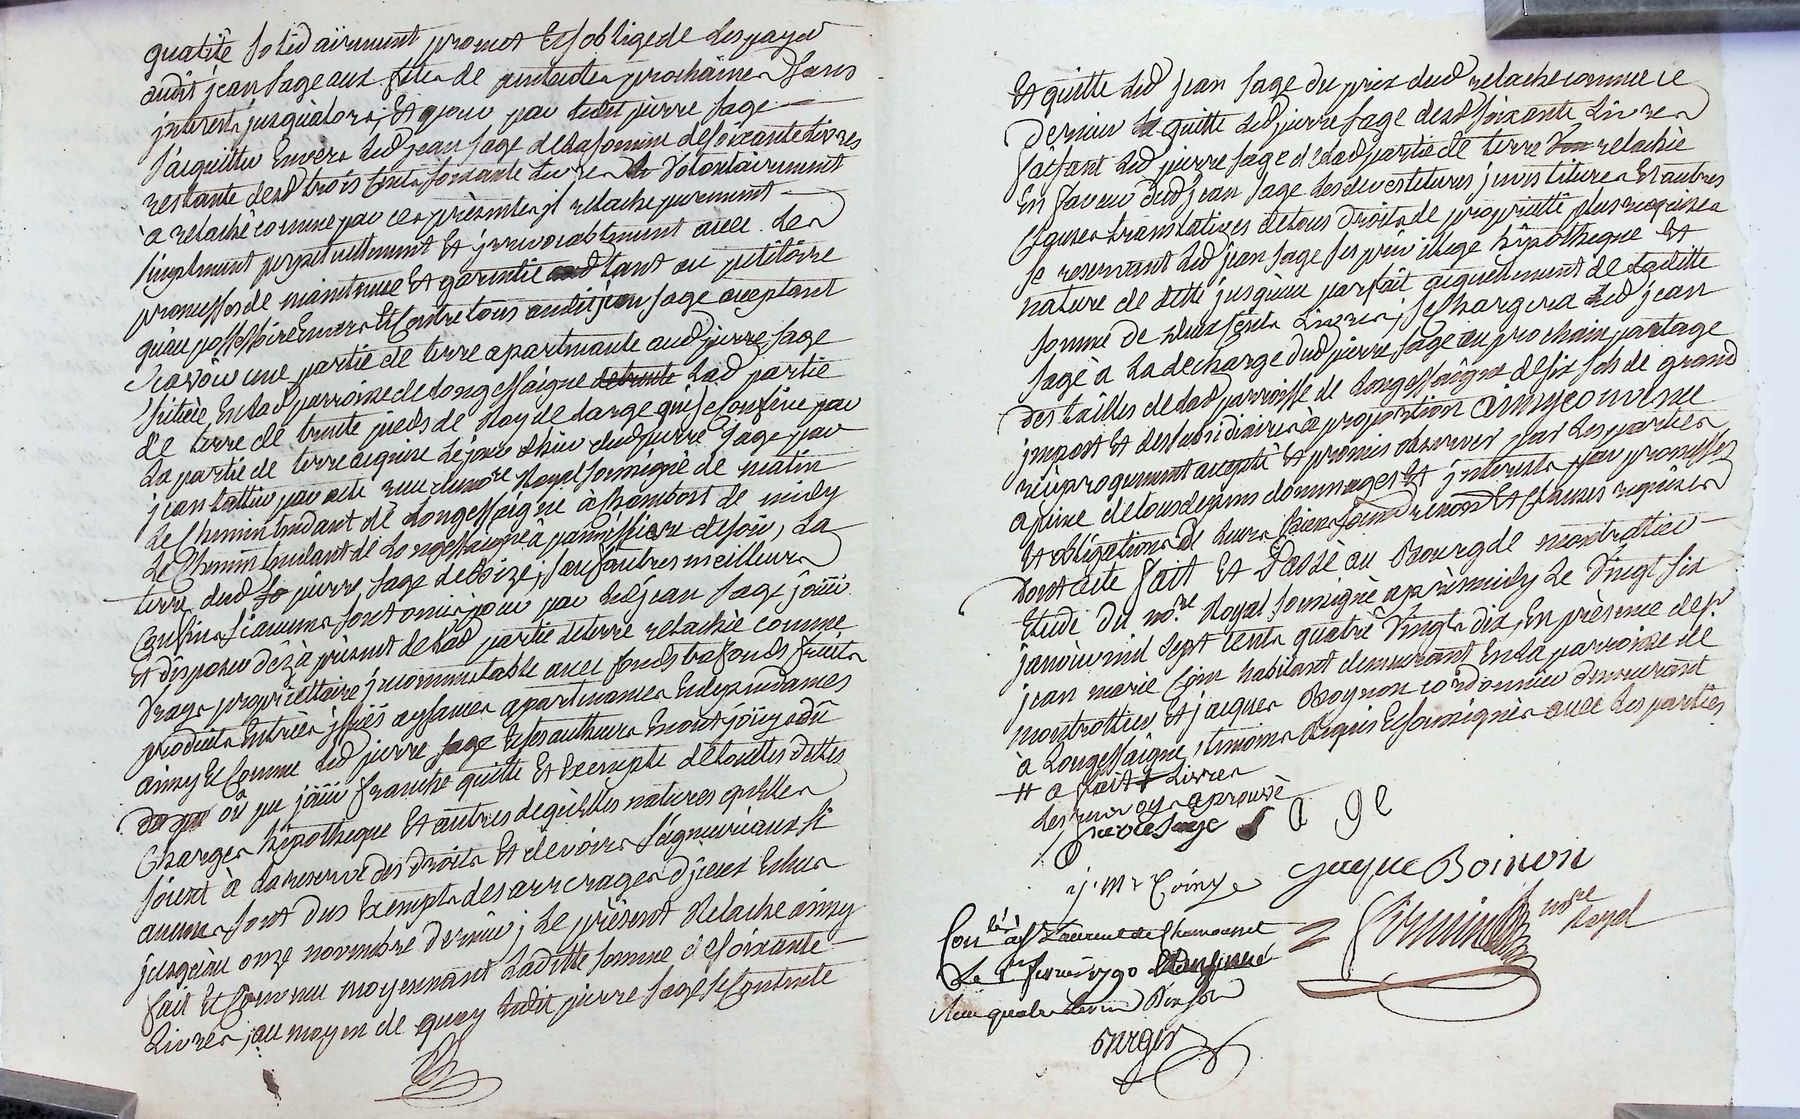 qualité solidairement promet et s'oblige de les payer
audit jean sage aux fêtes de pentecotes prochaines sans
interest jusqu'alors, et pour par ledit pierre sage
s'aquitter envers led jean sage de la somme de soixante livres
restante desd trois cents soixante livres volontairement
à relaché comme par ces présentes il relache purement
simplement perpetuellement et irrevocablement avec les
promesses de maintenue et garentie tant au petitoire
qu'au possessoire envers et contre tous audit jean sage aceptant
scavoir une partie de terre apartenante aud pierre sage
scituée en lad parroisse de longessaigne lad partie
de terre de trente pieds de Roy de large qui se confine par
la partie de terre aquise le jour d'hier dud pierre sage par
jean lattier par acte reçu du nore Royal soussigné de matin
le chemin tendant de Longessaigne à chambost de midy
le chemin tendant de Longessaigne à panissiere de soir, la
terre dud pierre sage de bize, sauf autres meilleurs
confins si aucuns sont omis pour par led jean sage jouir
et disposer dèzà présent de lad partie de terre relachée comme
vrays propriettaire incommutable avec fonds tresfonds fruits
produits entrées issües aysances apartenances et dependances
ainsy et comme led pierre sage et ses autheurs en ont jouy dû
ou pu jouir franche quitte et exempte de touttes dettes
charges hipotheque et autres de quelles natures qu'elles
soient à la reserve des droits et devoirs seigneuriaux si
aucuns sont dus exempts des arrerages d'iceux echus
jusqu'au onze novembre dernier; le présent relache ainsy
fait et convenu moyennant laditte somme de soixante
livres, au moyen de quoy ledit pierre sage se contente
et quitte led jean sage du prix dud relache comme ce
dernier quitte led pierre sage desd soixante livres
faisant led pierre sage de lad partie de terre relachée
en faveur dud jean sage les devestitures, investitures et autres
clauses translatives de tous droits de proprietté plus requises
se reservant led jean sage ses privilege hipotheque et
nature de dette jusqu'au parfait aquittement de laditte
somme de deux cents livres, se chargera led jean
sage à la decharge dud pierre sage au prochain partage
des tailles de lad parroisse de Longessaigne de six sols de grand
impost et des subsidiaires à proportion ainsy convenu
reciproquement accepté et promis observer par les parties
a peine de tous depens dommages et interests par promesses
et obligations de leurs biens soumis renons et clauses requises
Dont acte fait et Passé au Bourg de montrottier
etude du nore Royal soussigné après midy le vingt six
janvier mil sept cents quatre vingts dix, en présence de sr
jean marie Coin habitant demeurant en la parroisse de
montrottier et jacques Boynon cordonnier demeurant
à Longessaigne, temoins requis et soussignés avec les parties
# a fait # Livres
les renvoys aprouvé
pierre Sage S a ge
j. M. Coin jaque Boinon
nore
Royal
Conlé à St Laurent de Chamousset
Le 1er fevrier 1790
Reçu quatre livres dix sols